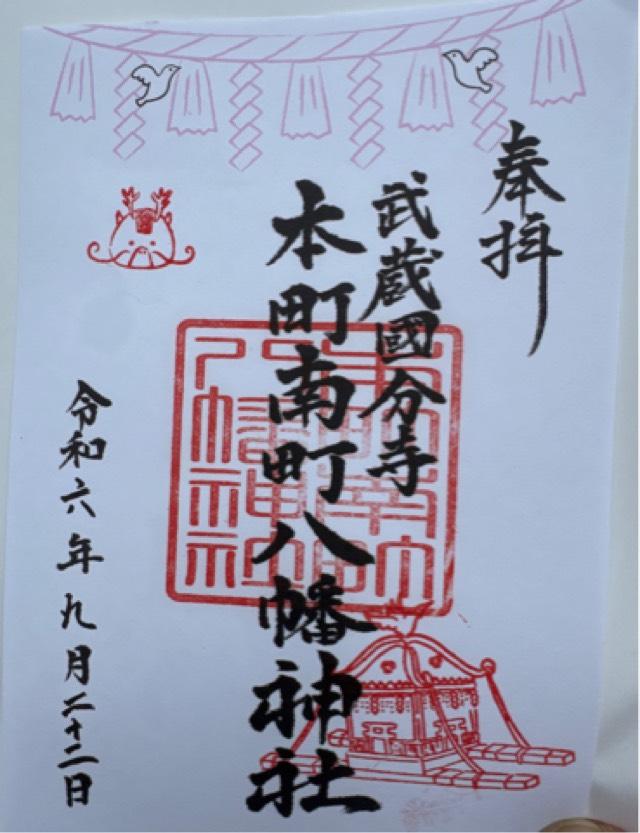 奉拝
武蔵國分寺
本町南町八幡神社
令和六年九月二十二日